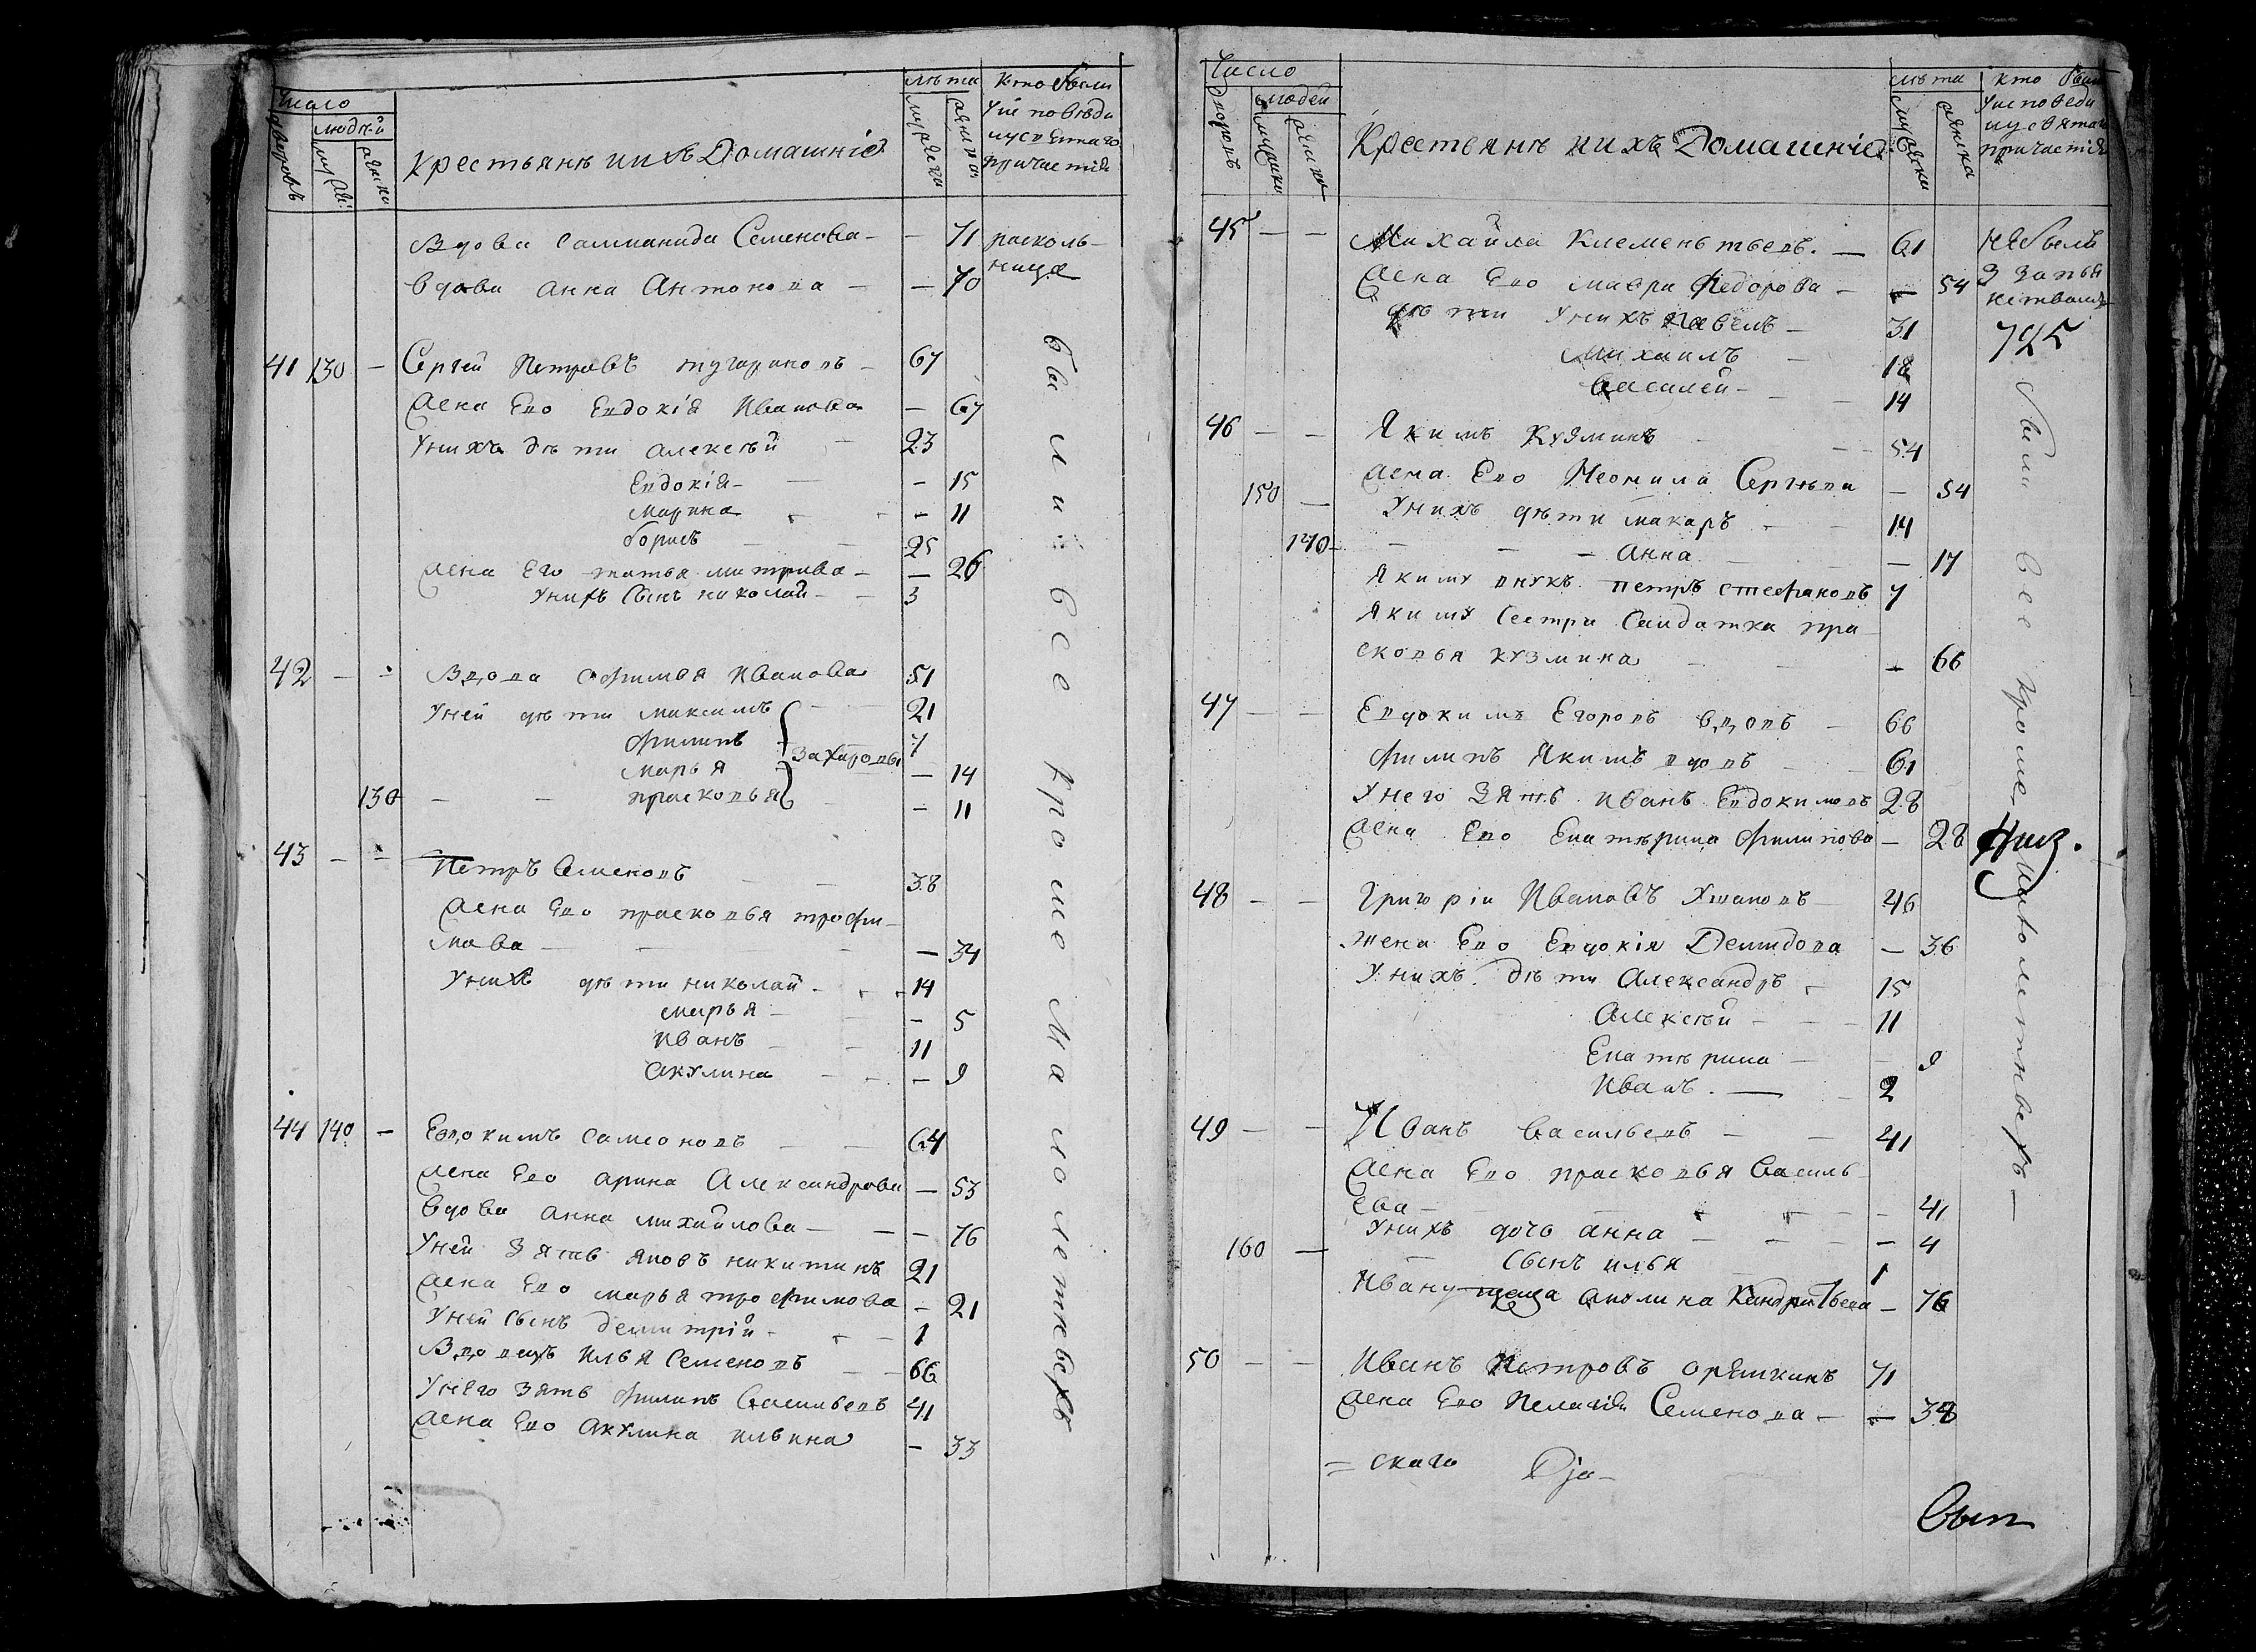 Число
дворовъ
людей
муж:
женска
Крестьянъ и ихъ Домашнiе
лѣта
мужска
женска
кто были
У исповѣди
и у святаго
причастiя
Вдова Саломанида Семенова – – 71 расколь-
ница
вдова анна Антонова – – 70
41 130 – Сергѣй Петровъ тугариновъ – 67
жена Ево Евдокiя Иванова – 67
У нихъ дѣти алексѣй – 23
Евдокiя – – 15
Марина – 11
борисъ 25
жена Его татья митрива – – 26
У нихъ Сынъ николай – – 3
42 – – Вдова Офимья Иванова 51
У ней дѣти максимъ – 21
филипъ 7
Захаровы
марья – 14
130 – – прасковья – 11
43 – – Петръ Семеновъ 38
жена Ево прасковья трофи-
мова – – 34
У нихъ дѣти николай – 14
марья – – 5
Иванъ – – 11
акулина – 9
44 140 – Евдокимъ самсоновъ 64
жена Ево арина Александрова – 53
вдова анна михайлова – – 76
У ней Зять яковъ никитинъ 21
жена Ево марья трофимова – 21
У ней Сынъ демитрiй – – 1
Вдовецъ илья Семеновъ – – 66
У него Зять филипъ Васильевъ 41
жена Ево Акулина ильина – 33
были все кроме малолетневхъ
Число
дворовъ
людей
мужска
женска
Крестьянъ и ихъ Домашнiе
лѣта
мужска
женска
кто были
У исповеди
и у святаго
причастiя
45 – – Михайла Клементьевъ. – 61 не былъ
жена Ево мавра Федорова – – 54 З запья
нствомъ
дѣти У нихъ Павелъ – 31
725
михаилъ – 18
василей – – 14
46 – – Якимъ Кузминъ – – 54
жена Ево Неонила Сергѣва – 54
150 –
У нихъ дѣти макаръ – 14
140 – – – – анна – 17
Якиму внукъ петръ стефановъ 7
Якиму Сестра Салдатка пра-
сковья кузмина – 66
47 – – Евдокимъ Егоровъ вдовъ – 66
филипъ Якимъ вдовъ – 61
У него Зять Иванъ Евдокимовъ 28
жена Ево Екатѣрина филипова – 28
48 – – Григорiи Ивановъ Хмановъ – 46
жена Ево Евдокiя Демидова – 36
У нихъ дѣти Александръ – 15
Алексѣй – – – 11
Екатѣрина – – 9
Иванъ. – – 2
49 – – Иванъ васильевъ – – 41
жена Ево прасковья василь-
ева – – – 41
У нихъ дочь анна – – – 4
160 – Сынъ илья 1
Ивану теща аколина Кандратьева – 76
50 – – Иванъ Петровъ оряшкинъ 71
жена Ево Пелагiя Семенова – – 38
были все кроме малолетневъ –
= скаго Дiа-